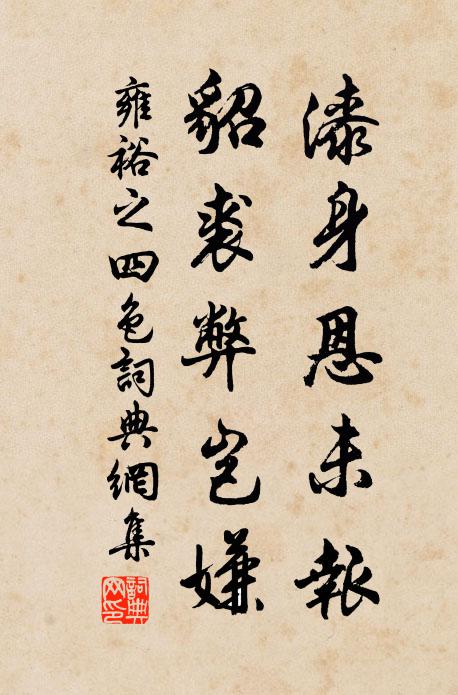 漆身恩未報
貂裘弊豈嫌
雍裕之四色詞典網集
詞典網印